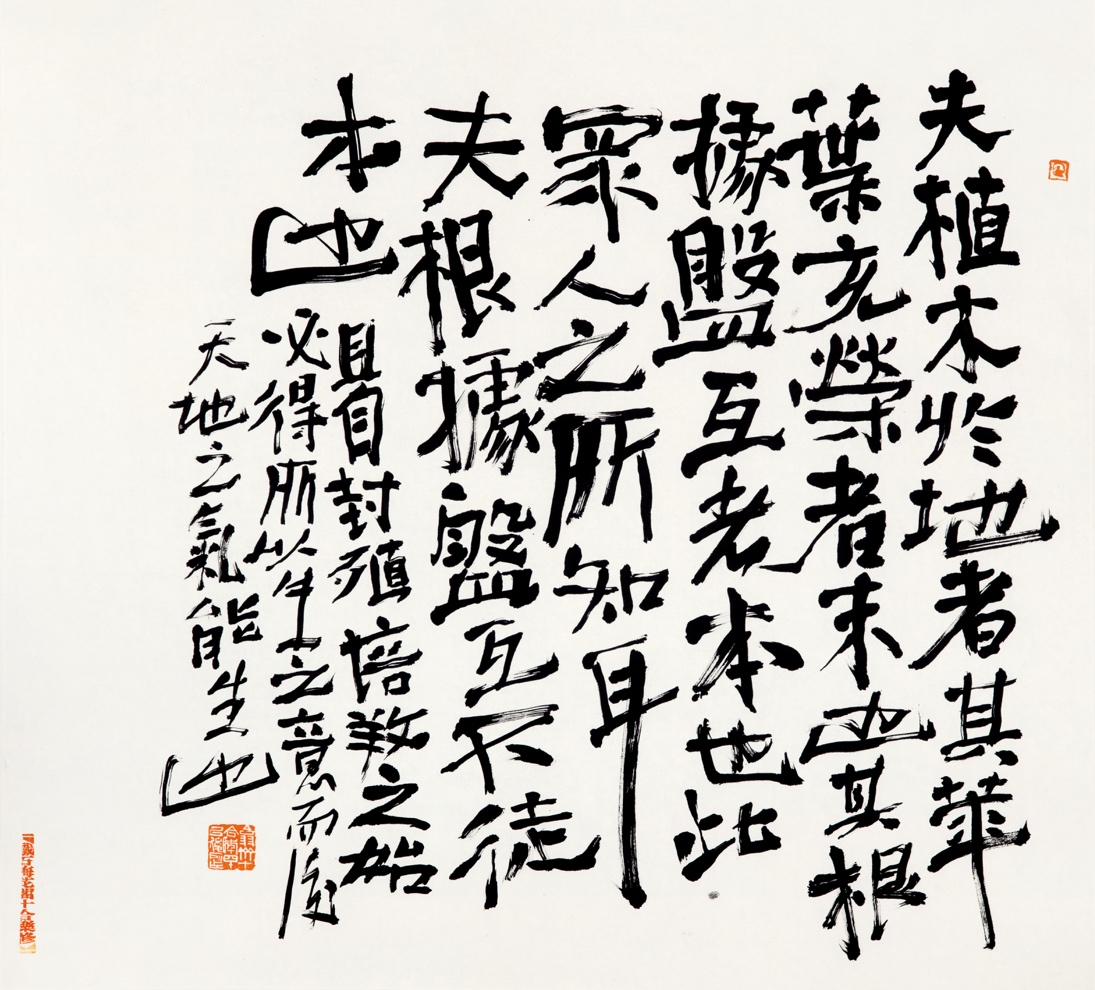 夫植木於地者其華
葉充榮者末也其根
據盤互者本也此
眾人之所知耳
夫根據盤互不徒
本也
且自封殖培之始
必得所以生之意而後
天地之氣能生也